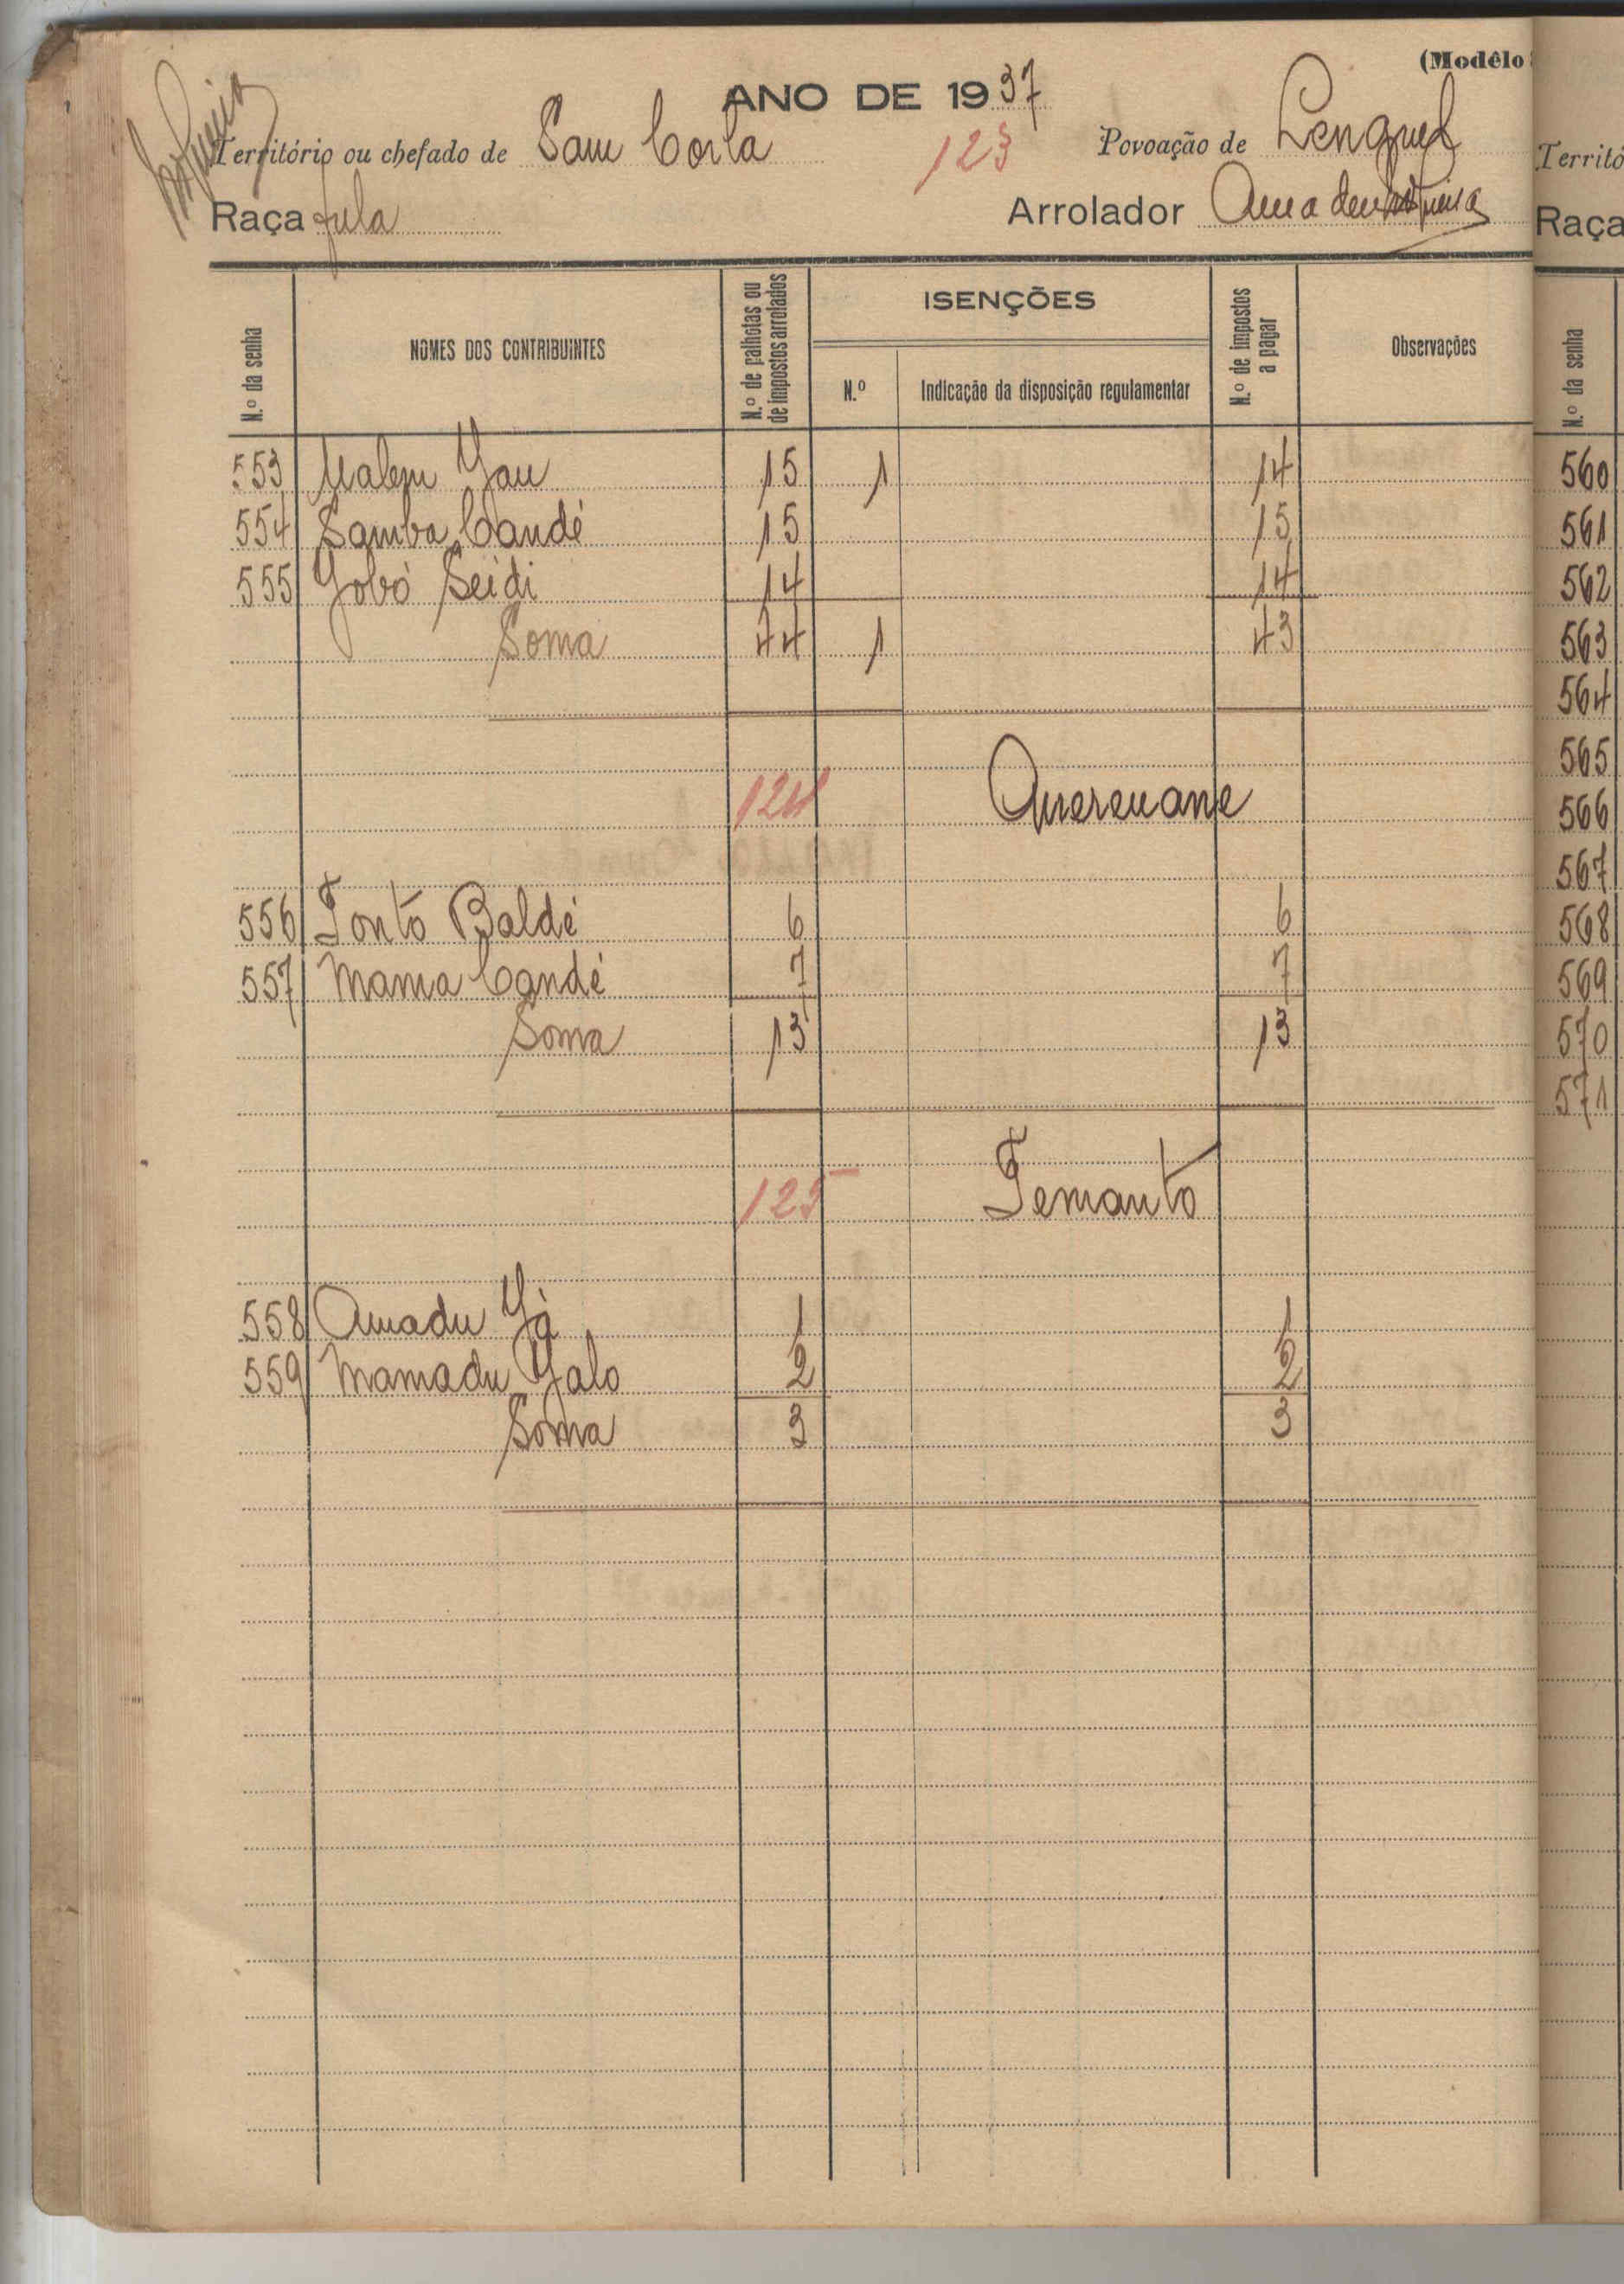 (Modêlo
ANO DE 1937
Território ou chefado de Sam Corla 123 Povoação de Lenguel
Raça fula Arrolador
N.º da senha NOMES DOS CONTRIBUINTES N.º de palhotas ou de impostos arrolados ISENÇÕES N.º Indicação da disposição regulamentar N.º de impostos a pagar Observações
553 Malem Jau 15 1 14
554 Samba Candé 15 15
555 Jobó Seidi 14 14
Soma 44 1 43
124 Quereuane
556 Tonto Baldé 6 6
557 Mama Candé 7 7
Soma 13 13
125 Temanto
558 Amadu Já 1 1
559 Mamadu Jalo 2 2
Soma 3 3
Territó
Raça
N.º da senha
560
561
562
563
564
565
566
567
568
569
570
571